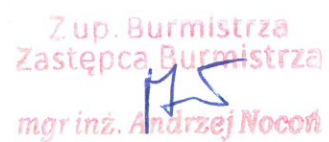 Z up. Burmistrza
Zastępca Burmistrza
mgr inż. Andrzej Nocoń